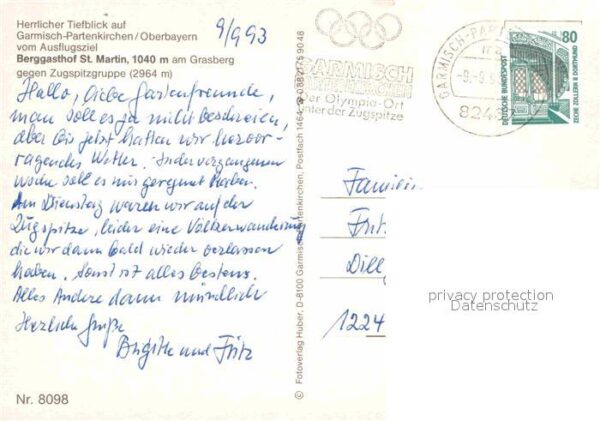 Herrlicher Tiefblick auf
Garmisch-Partenkirchen/Oberbayern
vom Ausflugsziel
Berggasthof St. Martin, 1040 m am Grasberg
gegen Zugspitzgruppe (2964 m)
9/9 93
Hallo, liebe Gartenfreunde,
man soll es ja nicht beschreien,
aber bis jetzt hatten wir hervor-
ragendes Wetter. In der vergangenen
Woche soll es nur geregnet haben.
Am Dienstag waren wir auf der
Zugspitze, leider eine Völkerwanderung
die wir dann bald wieder verlassen
haben. Sonst ist alles bestens.
Alles Andere dann mündlich
Herzliche Grüße
Brigitte und Fritz
Nr. 8098
© Fotoverlag Huber, D-8100 Garmisch-Partenkirchen, Postfach 1464, 08821/5 90 48
GARMISCH
PARTENKIRCHEN
Der Olympia-Ort
unter der Zugspitze
GARMISCH-PART
-9.-9.
824
80
DEUTSCHE BUNDESPOST
ZECHE ZOLLERN II DORTMUND
Familie
Fritz
Dill
1224
privacy protection
Datenschutz